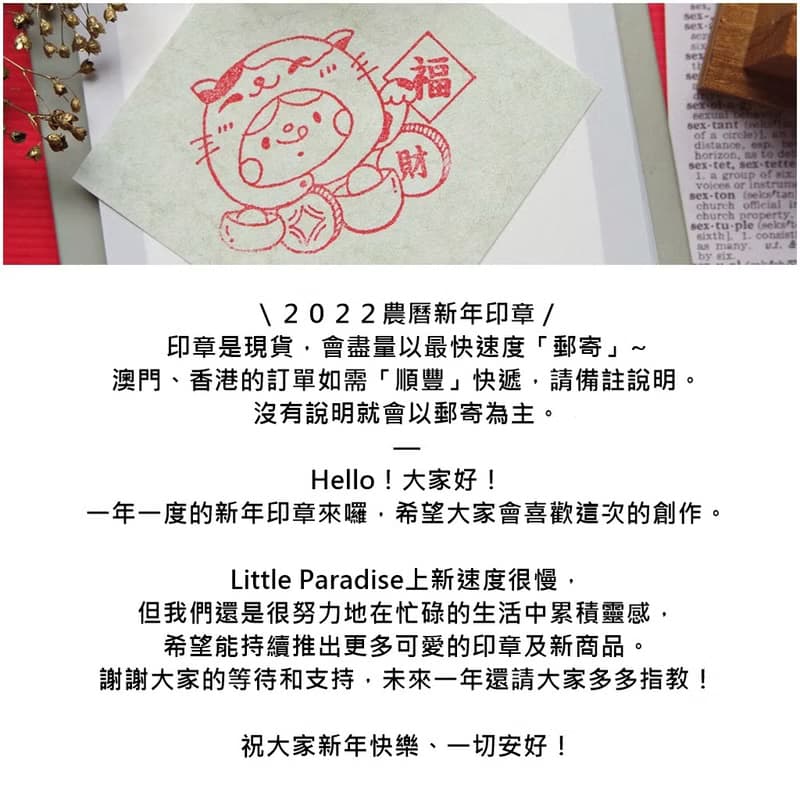 福
財
sex·tant
of a circle], an i
distance, esp. he
horizon, as to det
sex·tet, sex·tette
1. a group of six
voices or instrum
sex·ton
church official i
church property.
sex·tu·ple
sixth]. 1. consist
as many.
by six.
\ ２０２２農曆新年印章 /
印章是現貨，會盡量以最快速度「郵寄」~
澳門、香港的訂單如需「順豐」快遞，請備註說明。
沒有說明就會以郵寄為主。
—
Hello！大家好！
一年一度的新年印章來囉，希望大家會喜歡這次的創作。
Little Paradise上新速度很慢，
但我們還是很努力地在忙碌的生活中累積靈感，
希望能持續推出更多可愛的印章及新商品。
謝謝大家的等待和支持，未來一年還請大家多多指教！
祝大家新年快樂、一切安好！